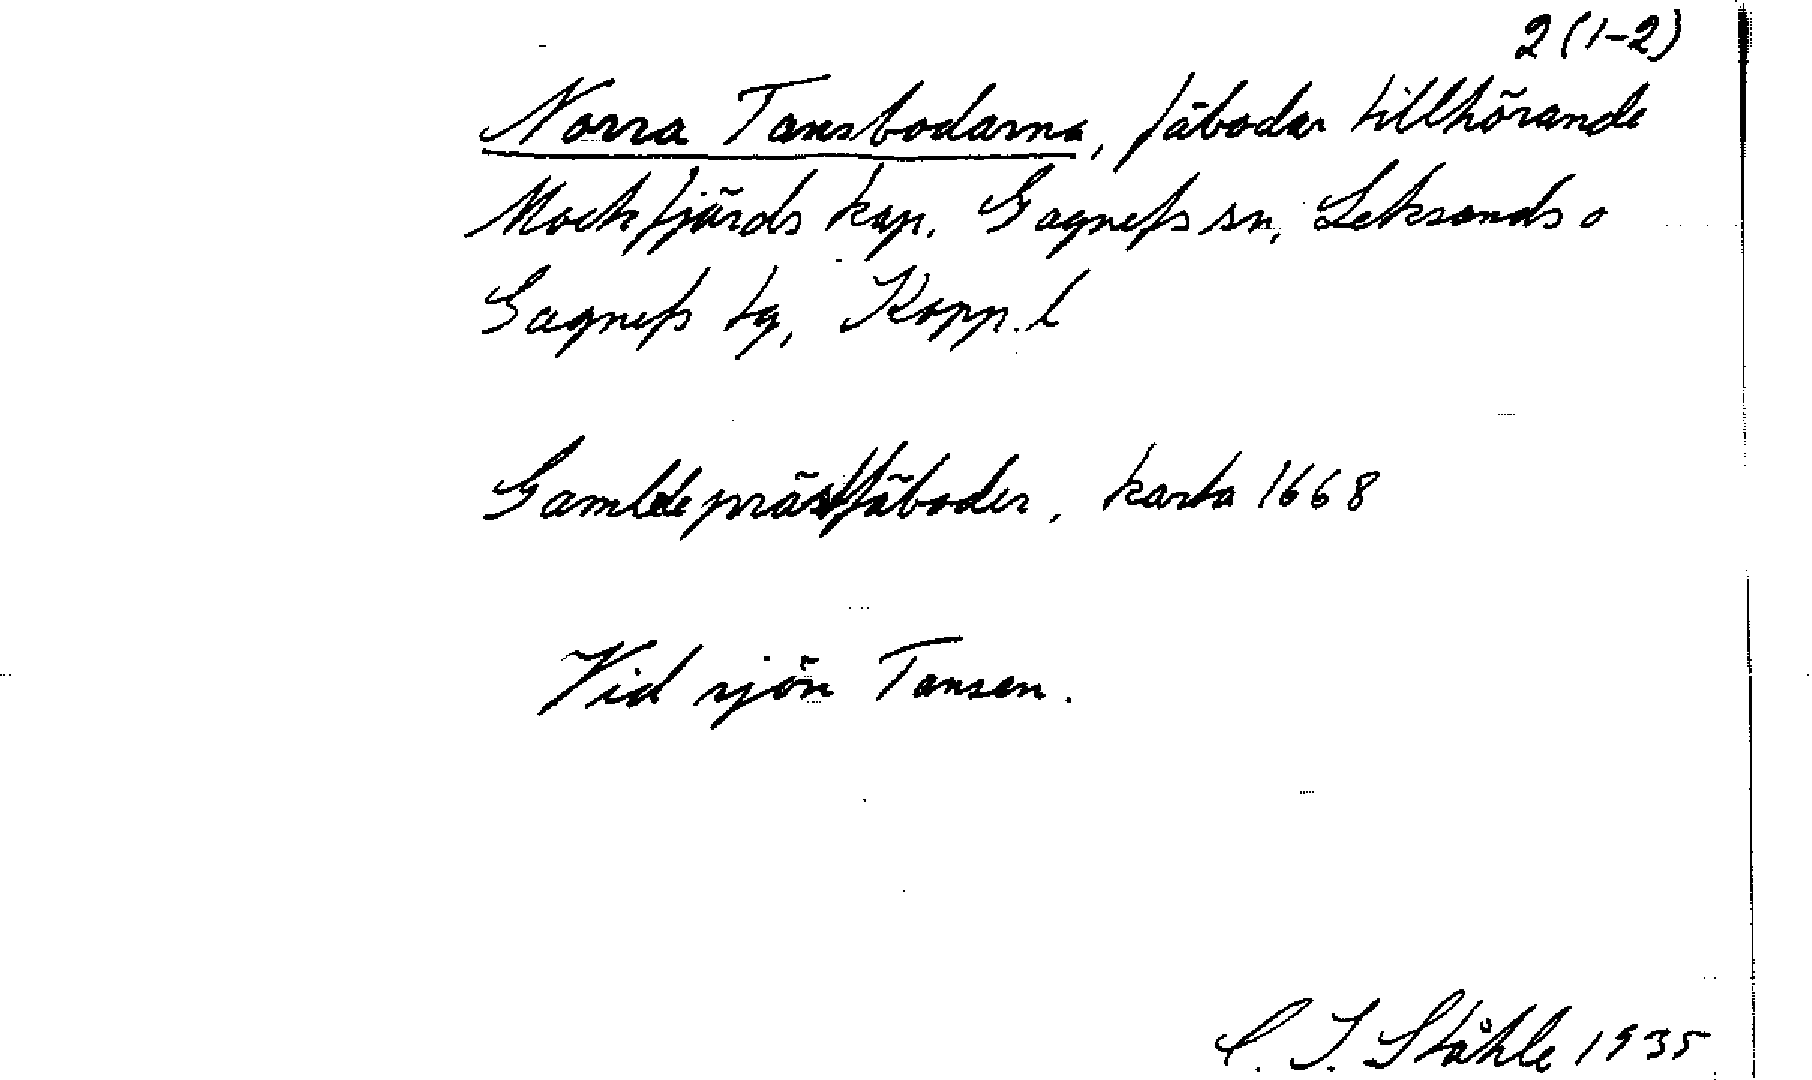 2 (1-2)
Norra Tansbodarna, fäbodar tillhörande
Mockfjärds kap. Gagnefs sn, Leksands o
Gagnefs tg, Kopp. l
Gamble prästfäboder, karta 1668
Vid sjön Tansen.
C. I. Ståhle 1935